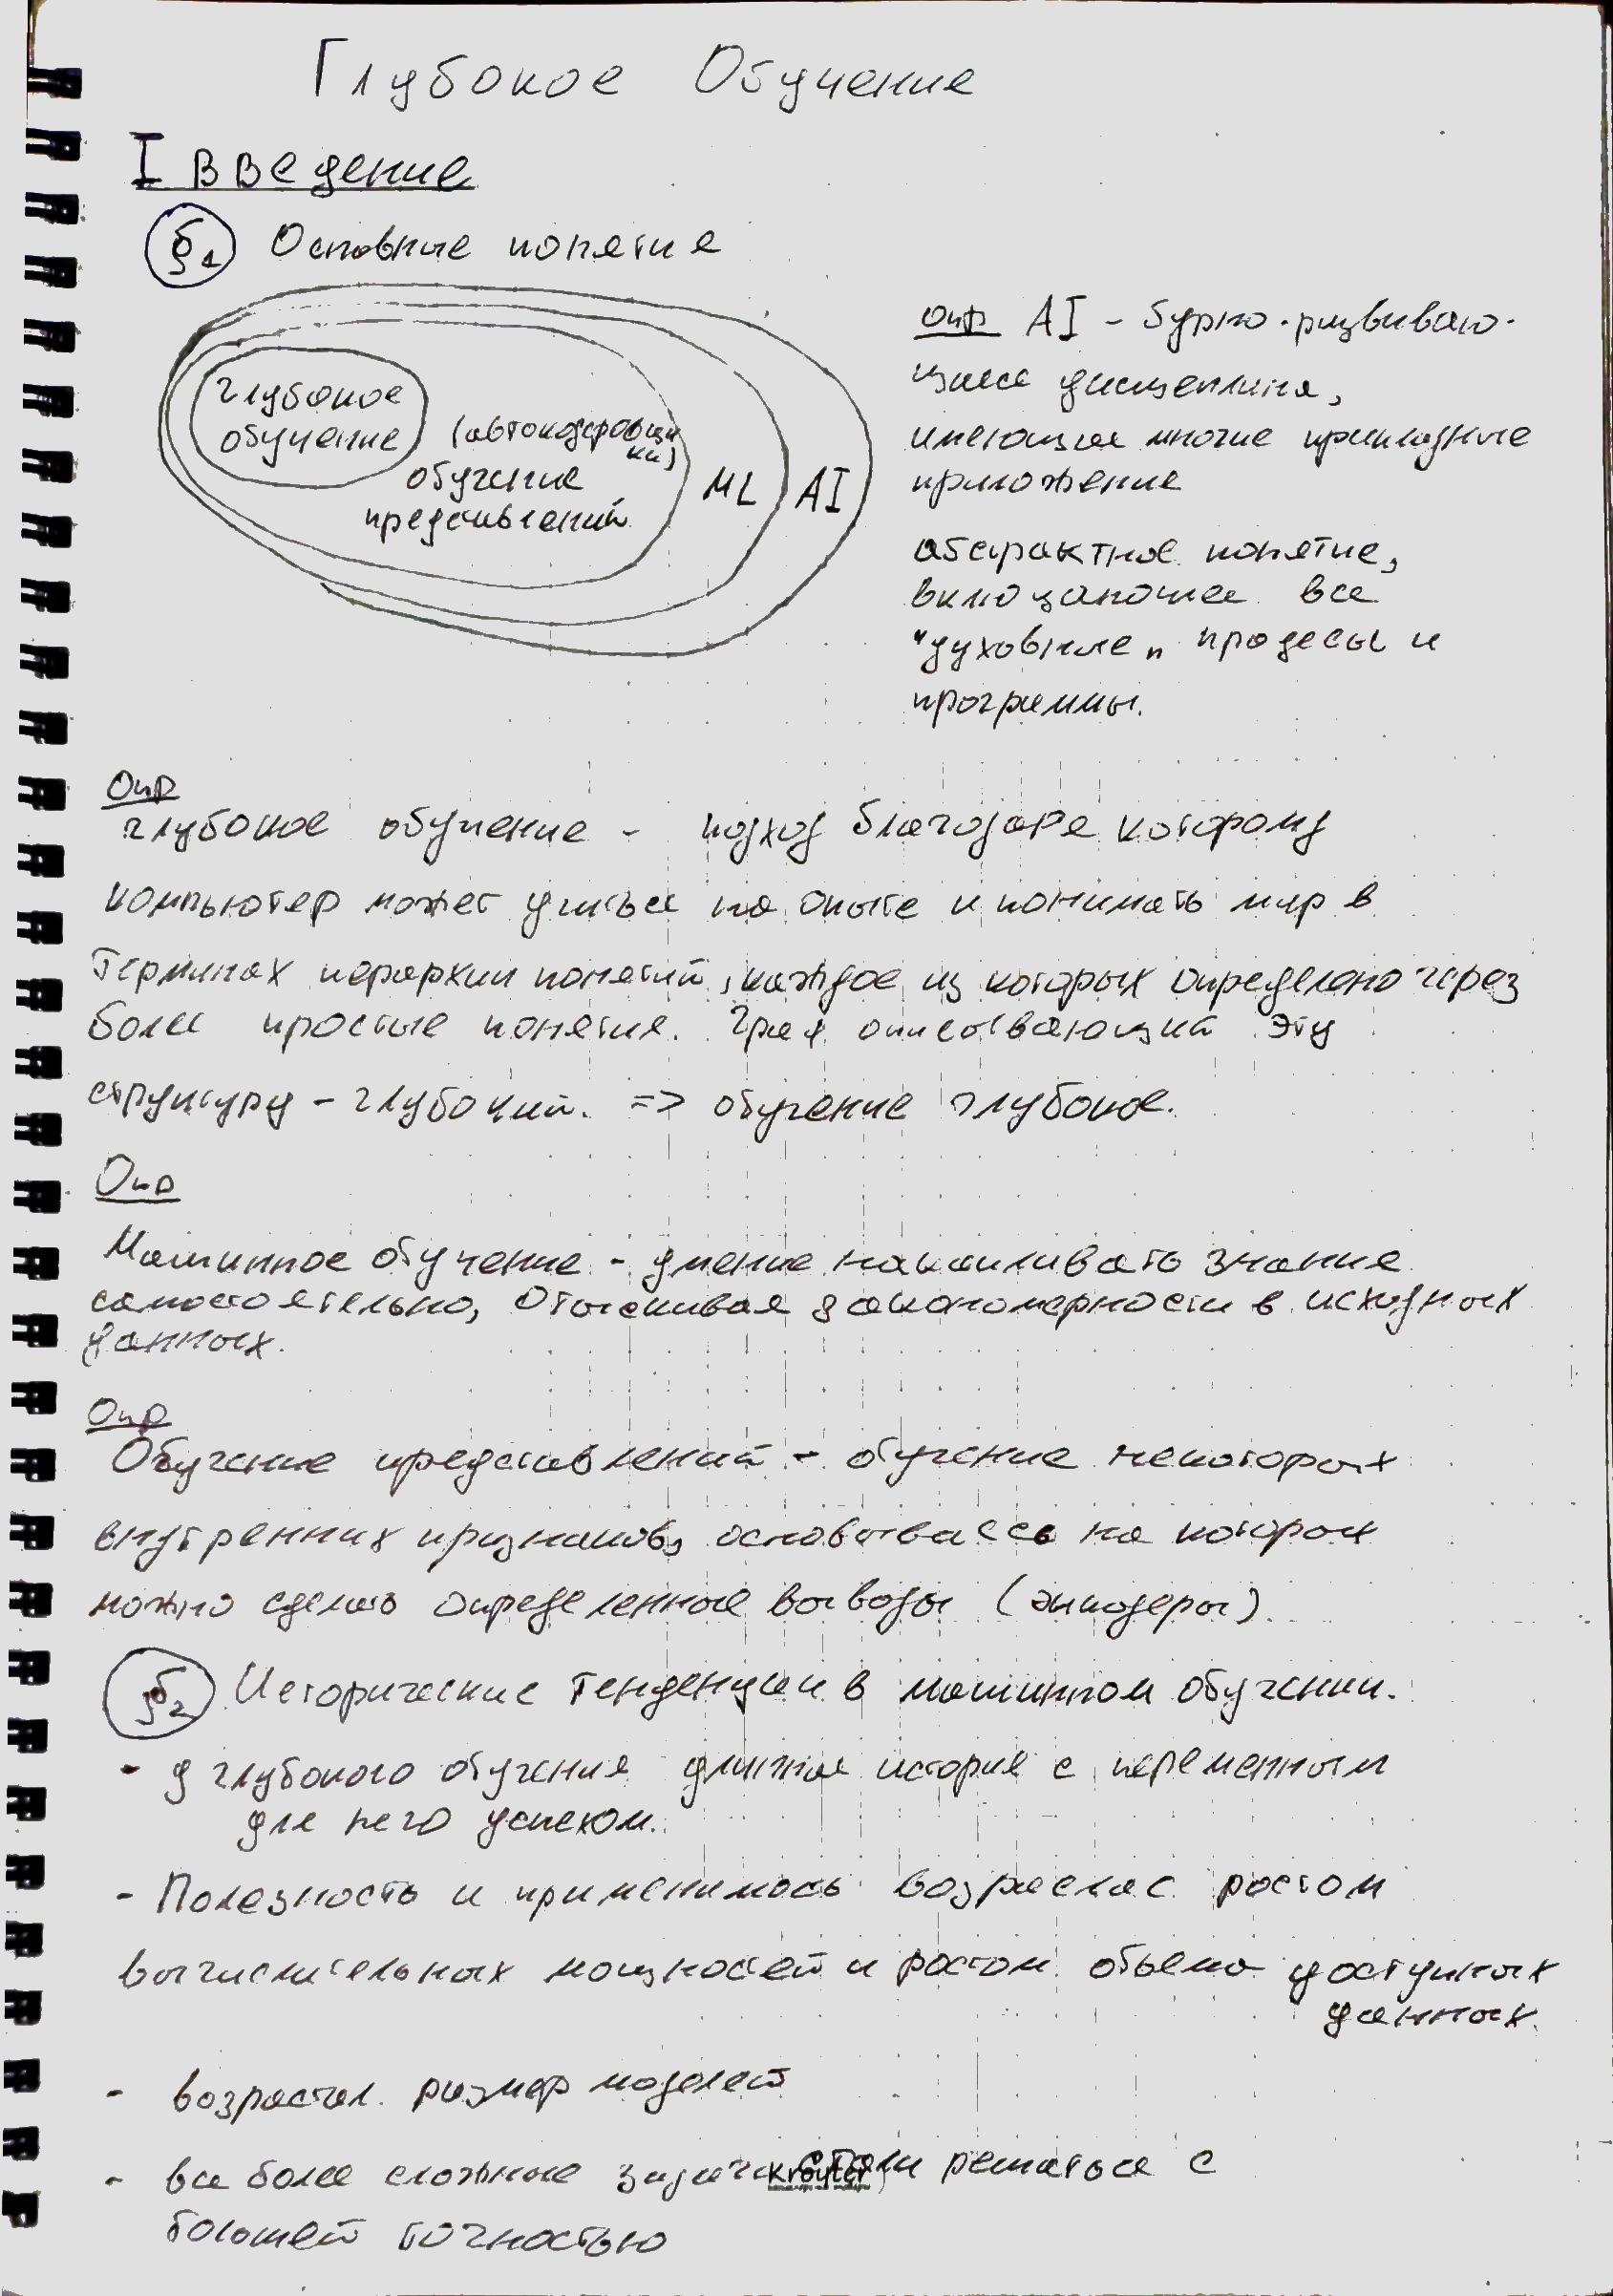 Глубокое Обучение
I Введение
§1 Основные понятия
глубокое
обучение
(автокодировщи
ки)
обучение
представлений
ML
AI
Опр AI - бурно-развиваю-
щаяся дисциплина,
имеющая многие прикладные
приложения
абстрактное понятие,
включающее все
"духовные" процесы и
программы.
Опр
глубокое обучение - подход благодаря которому
компьютер может учиться на опыте и понимать мир в
терминах иерархии понятий, каждое из которых определено через
более простые понятия. Граф описывающий эту
структуру - глубокий. => обучение глубокое.
Опр
Машинное обучение - умение накапливать знания
самостоятельно, отыскивая закономерности в исходных
данных.
Опр
Обучение представлений - обучение некоторых
внутренних признаков, основываясь на которых
можно сделать определенные выводы (энкодеры).
§2 Исторические тенденции в машинном обучении.
- у глубокого обучения длинная история с переменным
для него успехом.
- Полезность и применимось возрасла с ростом
вычислительных мощностей и ростом объема доступных
данных.
- возрастал размер моделей
- все более сложные задачи стали решаться с
большей точностью
kroyter